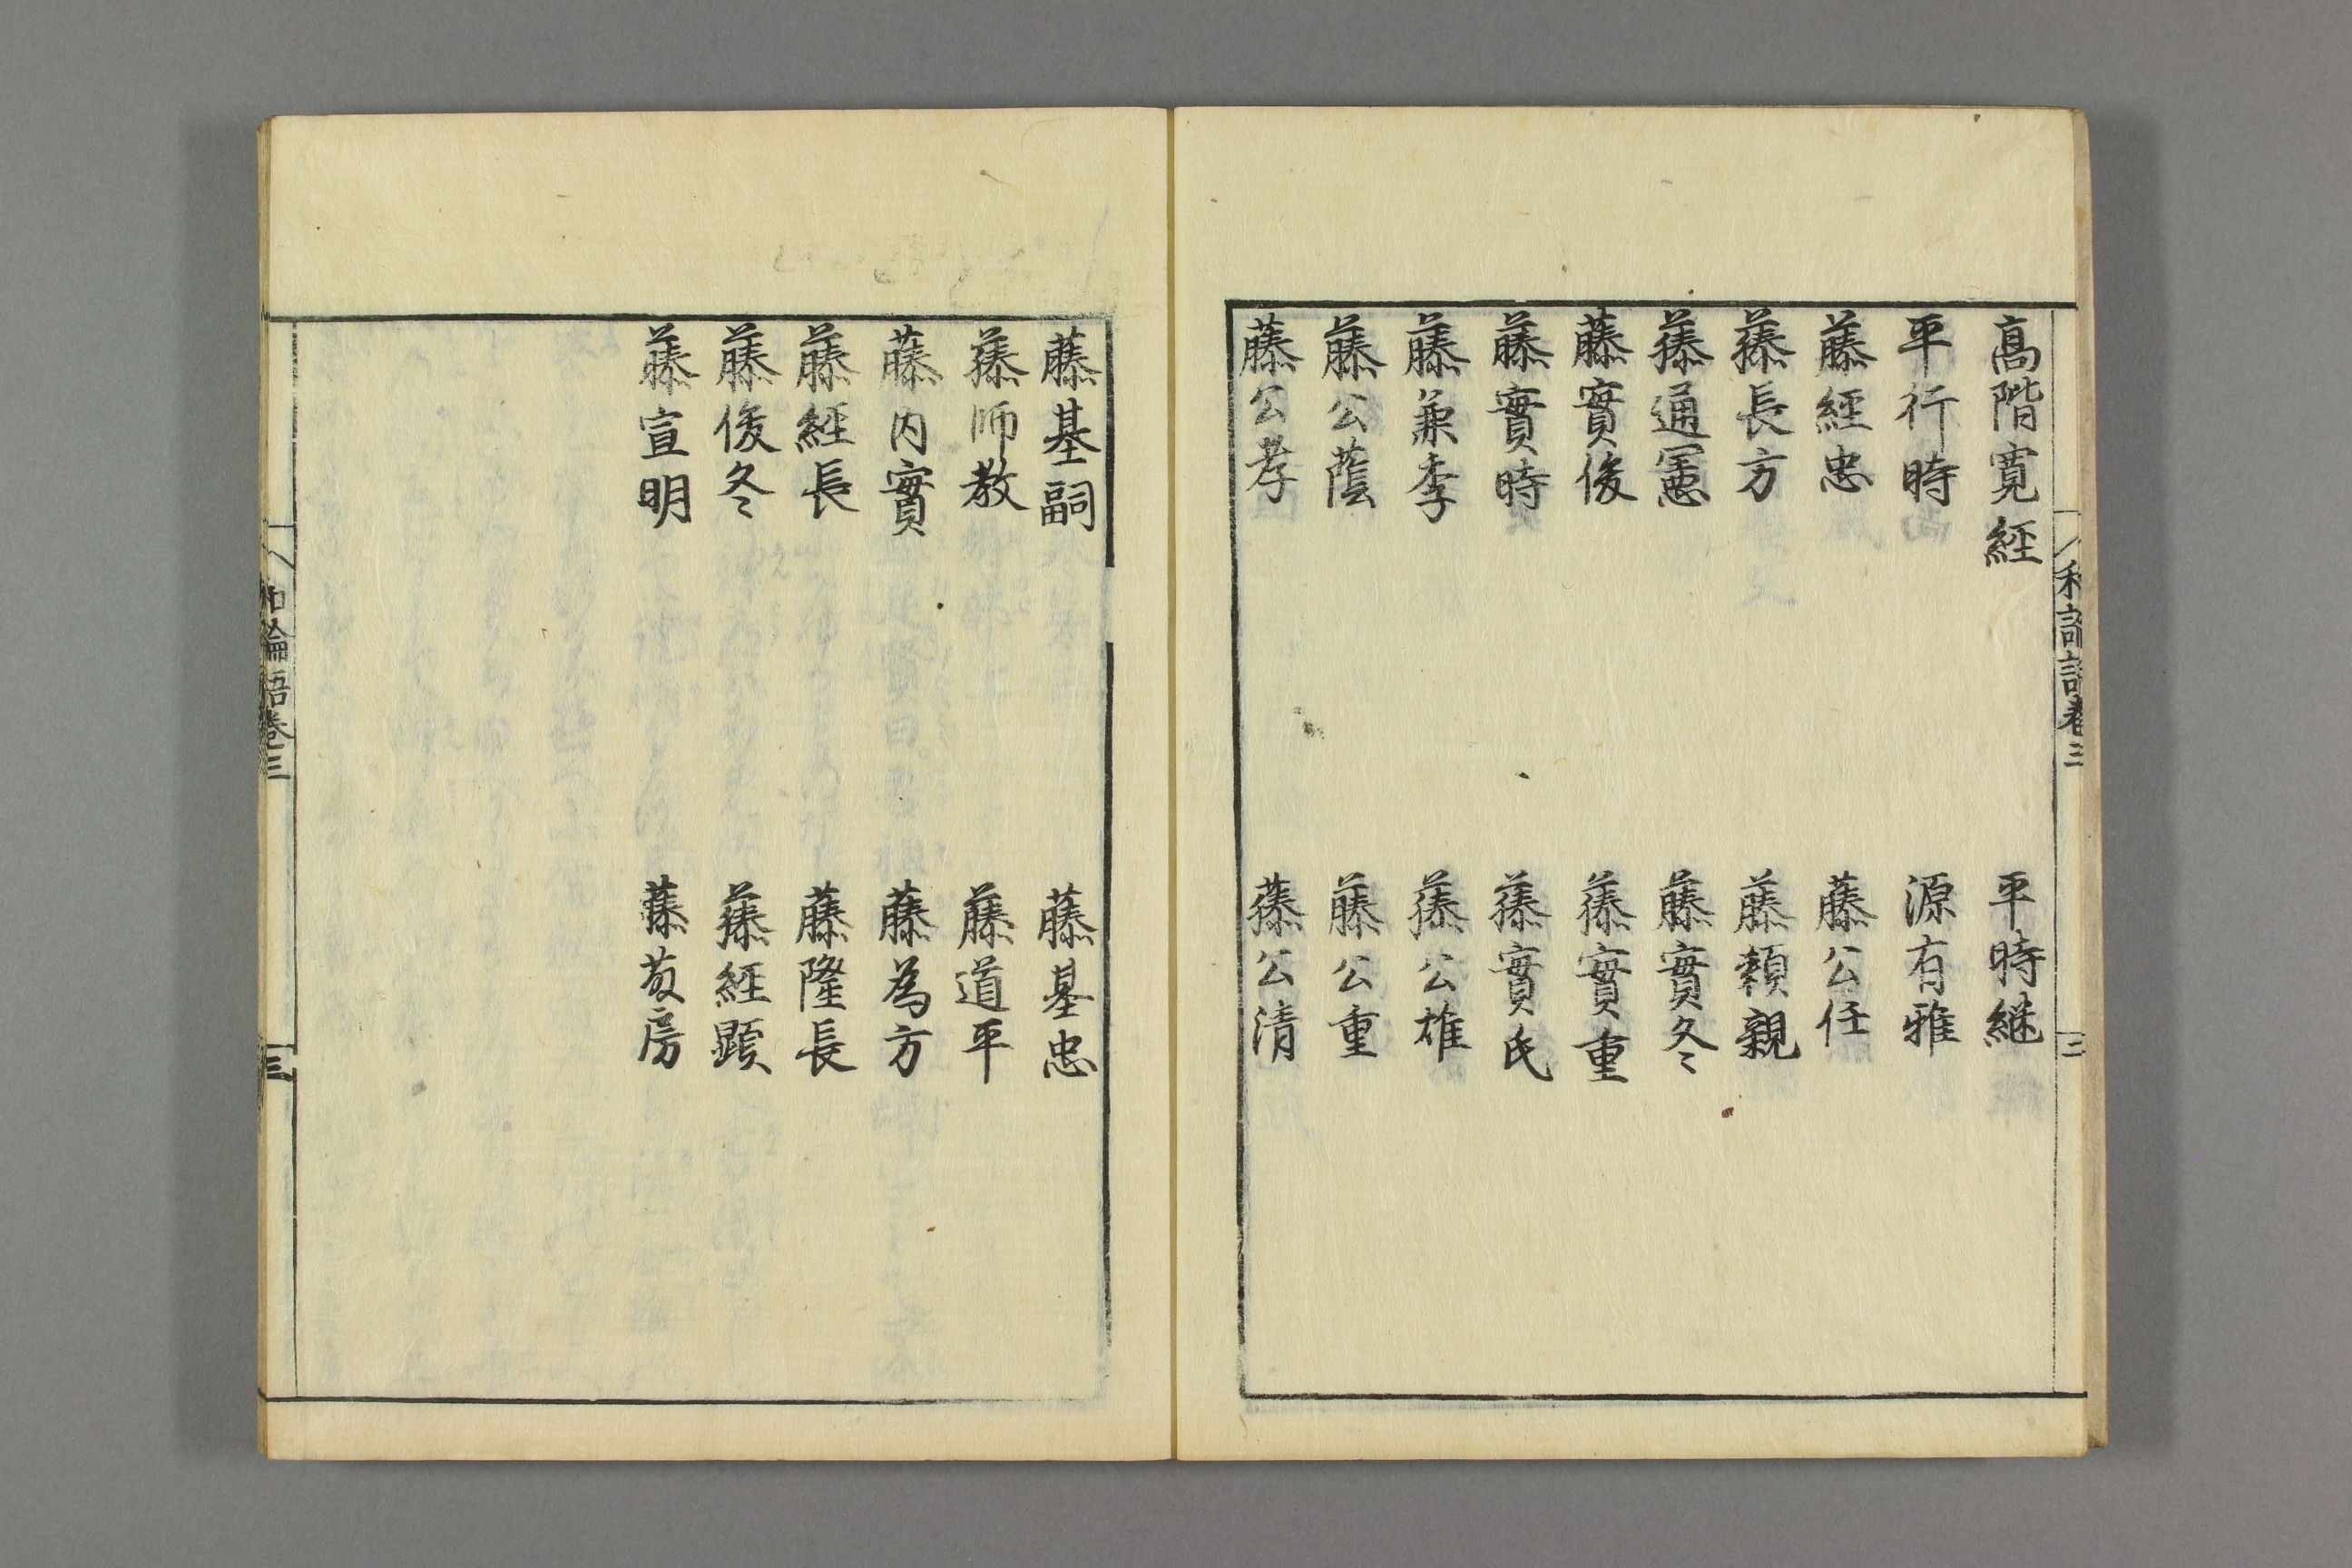 高階寛経　平時継
平行時　源有雅
藤経忠　藤公任
藤長方　藤頼親
藤通憲　藤實冬
藤實俊　藤實重
藤實時　藤實氏
藤兼季　藤公雄
藤公蔭　藤公重
藤公孝　藤公清
和論語卷三　二
藤基嗣　藤基忠
藤師教　藤道平
藤内實　藤為方
藤經長　藤隆長
藤俊冬　藤經顕
藤宣明　藤房
和論語卷三　三